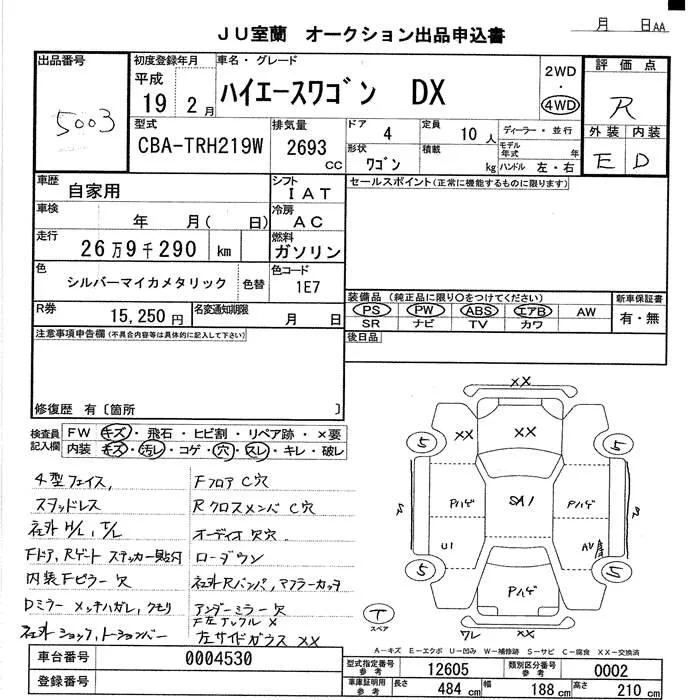 月 日AA
JU室蘭 オークション出品申込書
出品番号
5003
初度登録年月
平成
19 2月
車名・グレード
ハイエースワゴン DX
2WD
・
4WD
評価点
R
外装 内装
E D
型式
CBA-TRH219W
排気量
2693
cc
ドア 4
定員 10人
形状 ワゴン
積載 kg
ディーラー・並行
モデル年式 年
ハンドル 左・右
車歴
自家用
シフト
IAT
車検
年 月( 日)
冷房
AC
走行
26万9千290 km
燃料
ガソリン
色
シルバーマイカメタリック
色替
色コード
1E7
R券
15,250円
名変通知期限
月 日
セールスポイント(正常に機能するものに限ります)
装備品 (純正品に限り○をつけてください)
PS PW ABS エアB AW
SR ナビ TV カワ
新車保証書
有・無
後日品
注意事項申告欄(不具合内容等は具体的に記入して下さい)
修復歴 有〔箇所 〕
検査員
記入欄
FW キズ・飛石・ヒビ割・リペア跡・×要
内装 キズ・汚レ・コゲ・穴・スレ・キレ・破レ
4型フェイス,
スタッドレス
社外 H/L, T/L
Fドア, Rゲート ステッカー貼付
内装Fピラー穴
Dミラー メッキハガレ, クモリ
社外ショック, トーションバー
Fフロア C穴
Rクロスメンバ C穴
オーディオ R穴
ローダウン
社外Rバンパ, マフラーカッタ
アンダーミラー欠
F左ナックル X
左サイドガラス XX
XX
XX XX
5 5
Pハゲ SA1 Pハゲ
U1
Pハゲ
5 5
ワレ XX
T
スペア
A-キズ E-エクボ U-凹み W-補修跡 S-サビ C-腐食 XX-交換済
車台番号 0004530
登録番号
型式指定番号
参考
12605
類別区分番号
参考
0002
車庫証明用
参考
長さ 484cm 幅 188cm 高さ 210cm